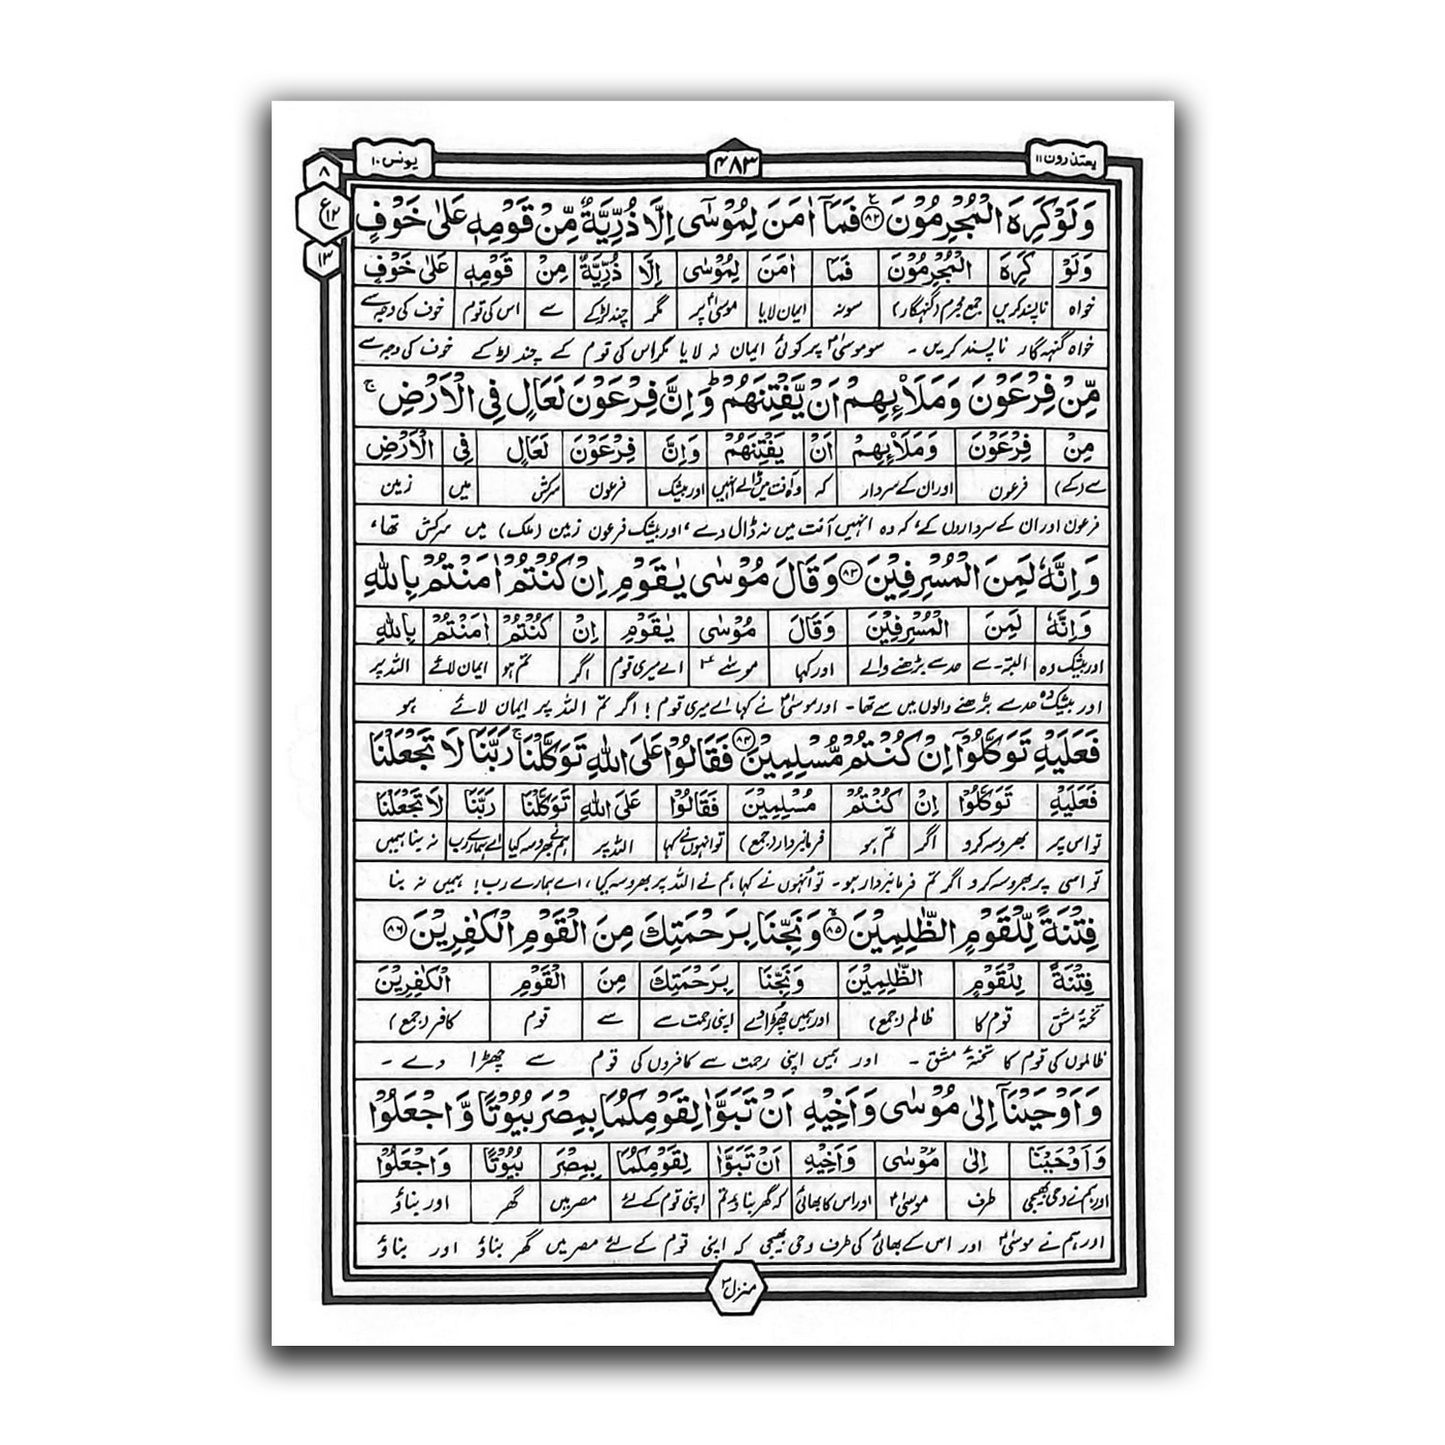 یعتذرون ۱۱
۴۸۳
یونس ۱۰
۸
ع ۱۲
۱۳
وَلَوْ كَرِهَ الْمُجْرِمُوْنَ ﴿۸۲﴾ فَمَاۤ اٰمَنَ لِمُوْسٰۤى اِلَّا ذُرِّیَّةٌ مِّنْ قَوْمِهٖ عَلٰى خَوْفٍ
وَلَوْ كَرِهَ الْمُجْرِمُوْنَ فَمَا اٰمَنَ لِمُوْسٰۤى اِلَّا ذُرِّیَّةٌ مِنْ قَوْمِهٖ عَلٰى خَوْفٍ
خواہ ناپسند کریں جمع مجرم (گنہگار) سو نہ ایمان لایا موسیٰؑ پر مگر چند لڑکے سے اس کی قوم خوف کی وجہ سے
خواہ گنہگار ناپسند کریں ۔ سو موسیٰؑ پر کوئی ایمان نہ لایا مگر اس کی قوم کے چند لڑکے خوف کی وجہ سے
مِّنْ فِرْعَوْنَ وَمَلَا۟ئِهِمْ اَنْ یَّفْتِنَهُمْ ؕ وَاِنَّ فِرْعَوْنَ لَعَالٍ فِى الْاَرْضِ ۚ
مِنْ فِرْعَوْنَ وَمَلَا۟ئِهِمْ اَنْ یَفْتِنَهُمْ وَاِنَّ فِرْعَوْنَ لَعَالٍ فِى الْاَرْضِ
سے (کے) فرعون اور ان کے سردار کہ وہ آفت میں ڈالے انہیں اور بیشک فرعون سرکش میں زمین
فرعون اور ان کے سرداروں کے، کہ وہ انہیں آفت میں نہ ڈال دے، اور بیشک فرعون زمین (ملک) میں سرکش تھا،
وَاِنَّهٗ لَمِنَ الْمُسْرِفِیْنَ ﴿۸۳﴾ وَقَالَ مُوْسٰى یٰقَوْمِ اِنْ كُنْتُمْ اٰمَنْتُمْ بِاللّٰهِ
وَاِنَّهٗ لَمِنَ الْمُسْرِفِیْنَ وَقَالَ مُوْسٰى یٰقَوْمِ اِنْ كُنْتُمْ اٰمَنْتُمْ بِاللّٰهِ
اور بیشک وہ البتہ ۔ سے حد سے بڑھنے والے اور کہا موسٰےؑ اے میری قوم اگر تم ہو ایمان لائے اللہ پر
اور بیشک وہ حد سے بڑھنے والوں میں سے تھا ۔ اور موسیٰؑ نے کہا اے میری قوم ! اگر تم اللہ پر ایمان لائے ہو
فَعَلَیْهِ تَوَكَّلُوْۤا اِنْ كُنْتُمْ مُّسْلِمِیْنَ ﴿۸۴﴾ فَقَالُوْا عَلَى اللّٰهِ تَوَكَّلْنَا ۚ رَبَّنَا لَا تَجْعَلْنَا
فَعَلَیْهِ تَوَكَّلُوْا اِنْ كُنْتُمْ مُسْلِمِیْنَ فَقَالُوْا عَلَى اللّٰهِ تَوَكَّلْنَا رَبَّنَا لَا تَجْعَلْنَا
تو اس پر بھروسہ کرو اگر تم ہو فرمانبردار (جمع) تو انہوں نے کہا اللہ پر ہم نے بھروسہ کیا اے ہمارے رب نہ بنا ہمیں
تو اسی پر بھروسہ کرو اگر تم فرمانبردار ہو ۔ تو انہوں نے کہا ہم نے اللہ پر بھروسہ کیا ، اے ہمارے رب ! ہمیں نہ بنا
فِتْنَةً لِّلْقَوْمِ الظّٰلِمِیْنَ ﴿۸۵﴾ وَنَجِّنَا بِرَحْمَتِكَ مِنَ الْقَوْمِ الْكٰفِرِیْنَ ﴿۸۶﴾
فِتْنَةً لِلْقَوْمِ الظّٰلِمِیْنَ وَنَجِّنَا بِرَحْمَتِكَ مِنَ الْقَوْمِ الْكٰفِرِیْنَ
تختۂ مشق قوم کا ظالم (جمع) اور ہمیں چھڑا دے اپنی رحمت سے سے قوم کافر (جمع)
ظالموں کی قوم کا تختۂ مشق ۔ اور ہمیں اپنی رحمت سے کافروں کی قوم سے چھڑا دے ۔
وَاَوْحَیْنَاۤ اِلٰى مُوْسٰى وَاَخِیْهِ اَنْ تَبَوَّاٰ لِقَوْمِكُمَا بِمِصْرَ بُیُوْتًا وَّاجْعَلُوْا
وَاَوْحَیْنَا اِلٰى مُوْسٰى وَاَخِیْهِ اَنْ تَبَوَّاٰ لِقَوْمِكُمَا بِمِصْرَ بُیُوْتًا وَاجْعَلُوْا
اور ہم نے وحی بھیجی طرف موسیٰؑ اور اس کا بھائی کہ گھر بناؤ تم اپنی قوم کے لئے مصر میں گھر اور بناؤ
اور ہم نے موسیٰؑ اور اس کے بھائی کی طرف وحی بھیجی کہ اپنی قوم کے لئے مصر میں گھر بناؤ اور بناؤ
منزل ۳